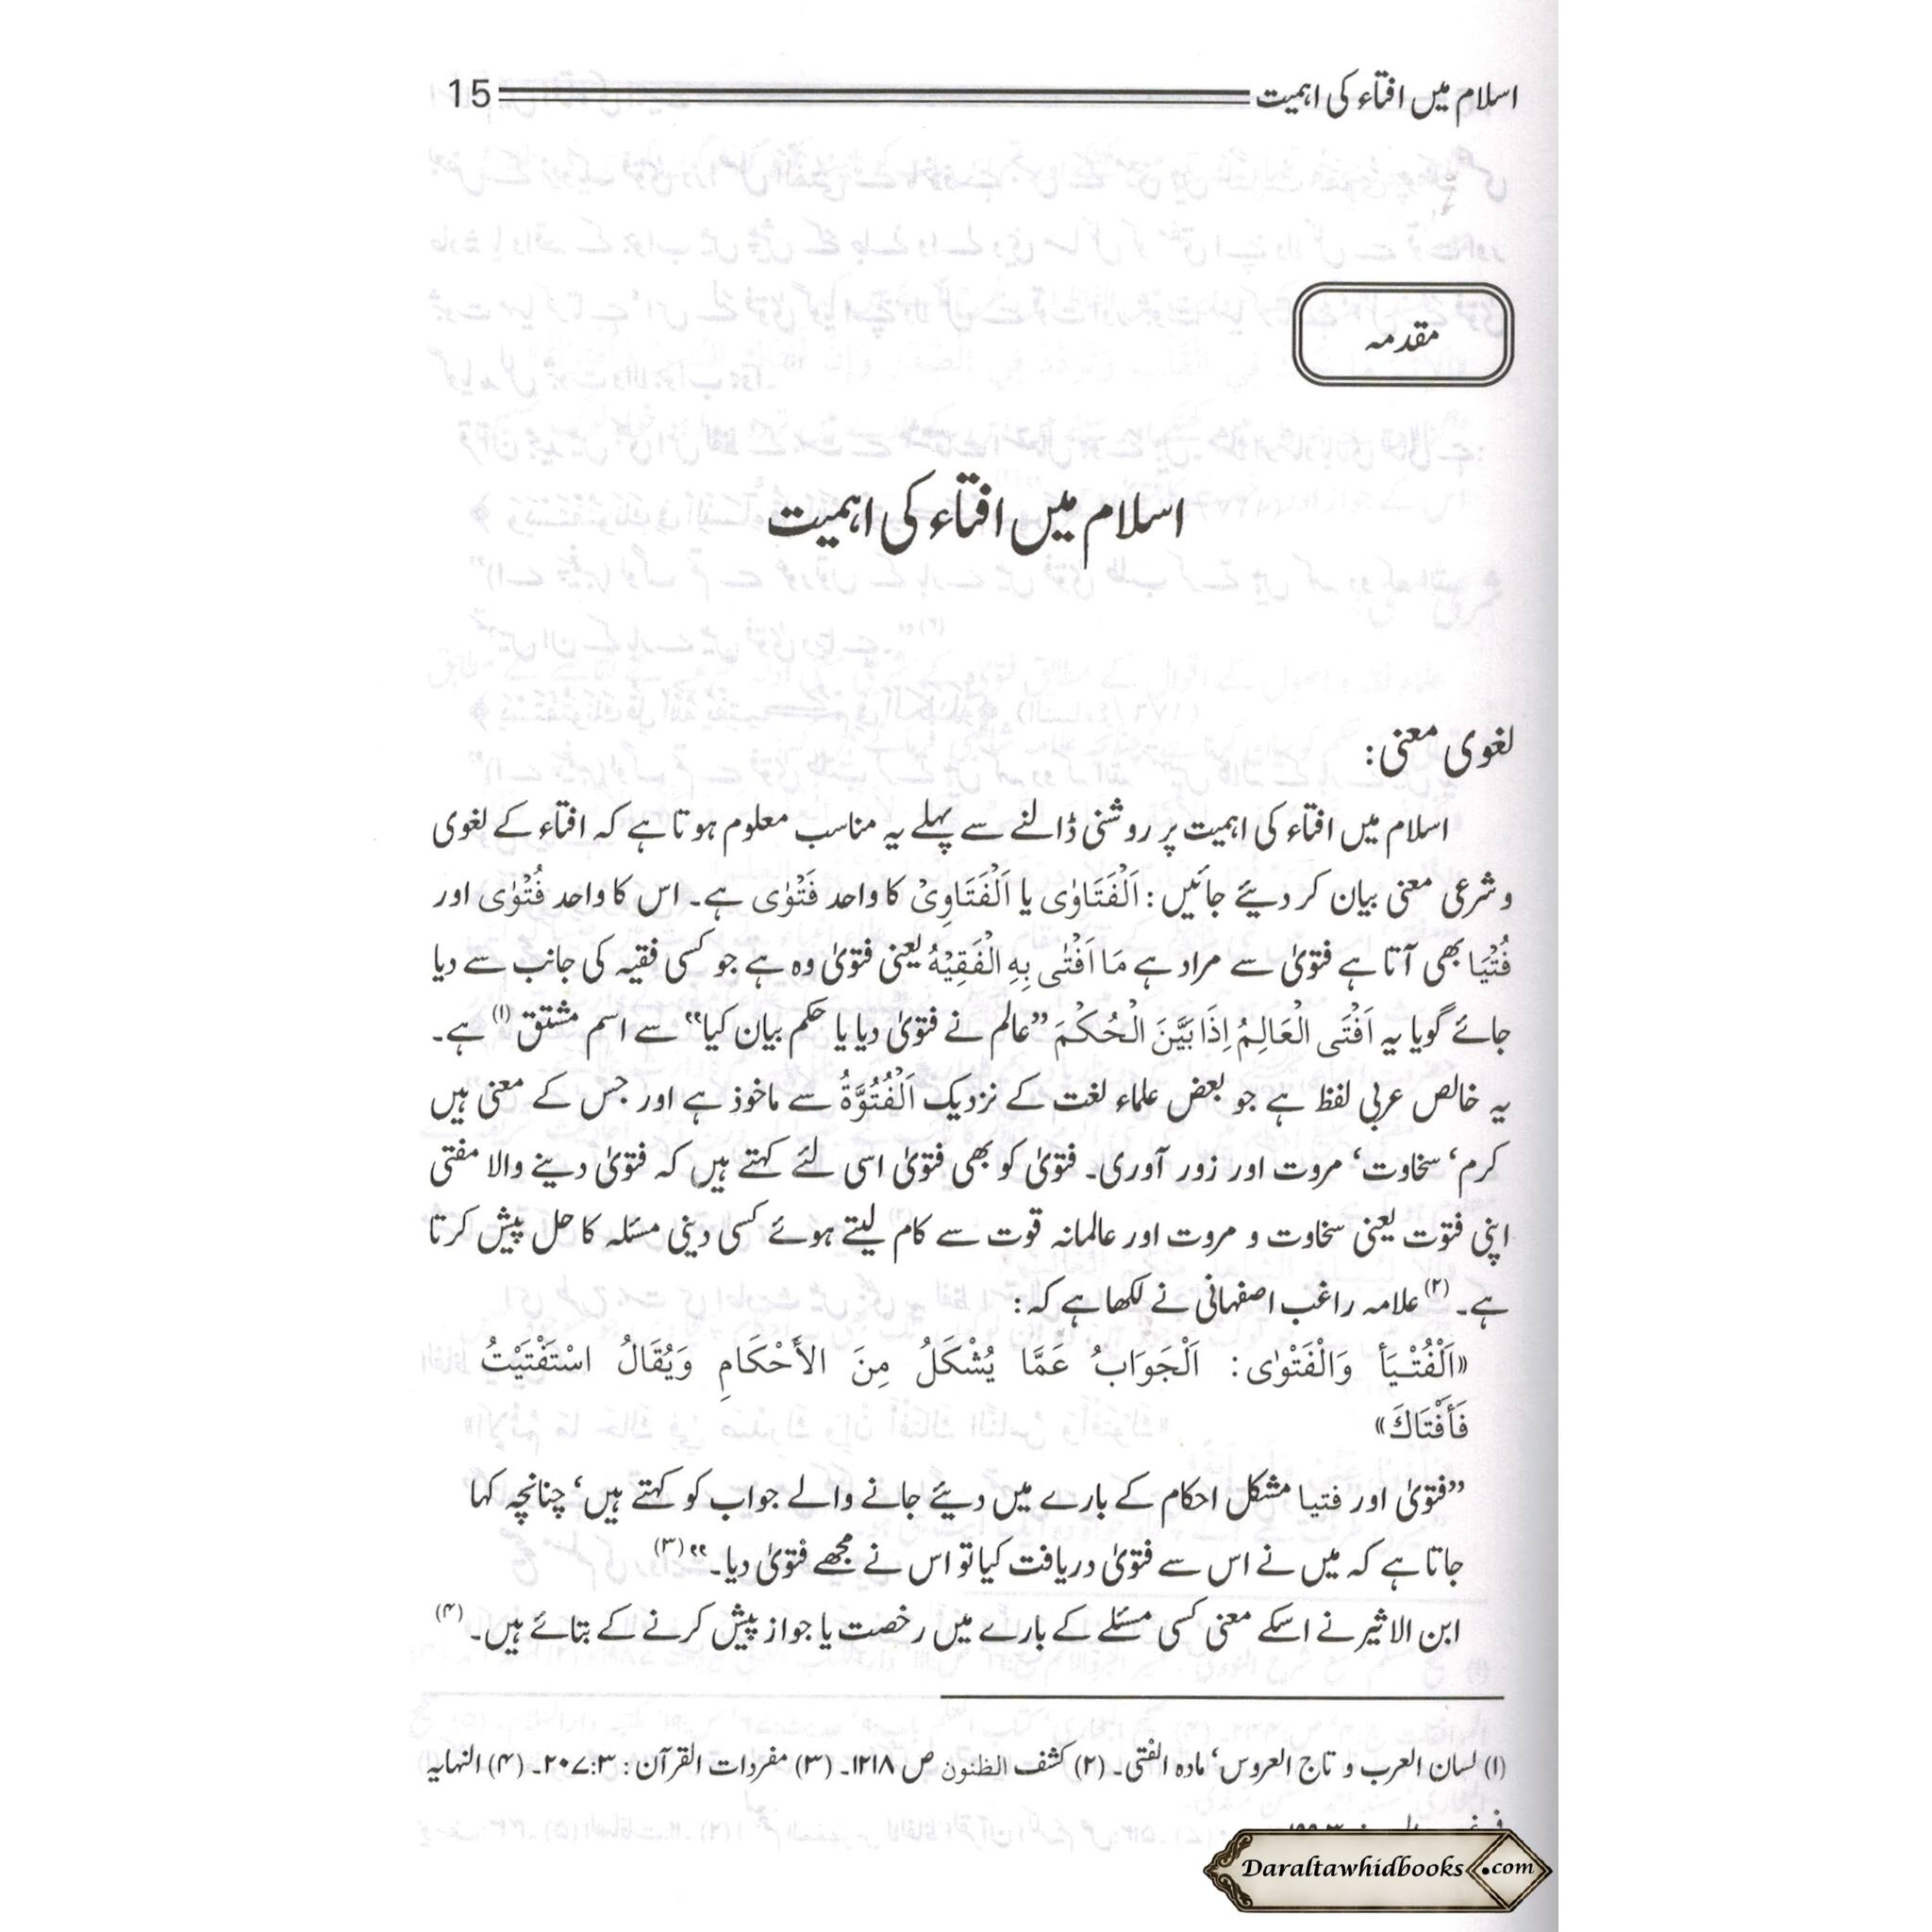 اسلام میں افتاء کی اہمیت 15
مقدمہ
اسلام میں افتاء کی اہمیت
لغوی معنی:
اسلام میں افتاء کی اہمیت پر روشنی ڈالنے سے پہلے یہ مناسب معلوم ہوتا ہے کہ افتاء کے لغوی
و شرعی معنی بیان کر دیئے جائیں: اَلْفَتَاوٰی یا اَلْفَتَاوِیْ کا واحد فَتْوٰی ہے۔ اس کا واحد فُتْوٰی اور
فُتْیَا بھی آتا ہے فتویٰ سے مراد ہے مَا اَفْتٰی بِهِ الْفَقِیْهُ یعنی فتویٰ وہ ہے جو کسی فقیہ کی جانب سے دیا
جائے گویا یہ اَفْتَی الْعَالِمُ اِذَا بَیَّنَ الْحُکْمَ ”عالم نے فتویٰ دیا یا حکم بیان کیا“ سے اسم مشتق (۱) ہے۔
یہ خالص عربی لفظ ہے جو بعض علماء لغت کے نزدیک اَلْفُتُوَّةُ سے ماخوذ ہے اور جس کے معنی ہیں
کرم‘ سخاوت‘ مروت اور زور آوری۔ فتویٰ کو بھی فتویٰ اسی لئے کہتے ہیں کہ فتویٰ دینے والا مفتی
اپنی فتوت یعنی سخاوت و مروت اور عالمانہ قوت سے کام لیتے ہوئے کسی دینی مسئلہ کا حل پیش کرتا
ہے۔ (۲) علامہ راغب اصفہانی نے لکھا ہے کہ:
«اَلْفُتْيَأ وَالْفَتْوٰى: اَلْجَوَابُ عَمَّا يُشْكَلُ مِنَ الأَحْكَامِ وَيُقَالُ اسْتَفْتَيْتُ
فَأَفْتَاكَ»
”فتویٰ اور فتیا مشکل احکام کے بارے میں دیئے جانے والے جواب کو کہتے ہیں‘ چنانچہ کہا
جاتا ہے کہ میں نے اس سے فتویٰ دریافت کیا تو اس نے مجھے فتویٰ دیا۔“ (۳)
ابن الاثیر نے اسکے معنی کسی مسئلے کے بارے میں رخصت یا جواز پیش کرنے کے بتائے ہیں۔ (۴)
(۱) لسان العرب و تاج العروس‘ مادہ الفتی۔ (۲) کشف الظنون ص ۱۲۱۸۔ (۳) مفردات القرآن: ۲۰۷:۳۔ (۴) النہایہ
Daraltawhidbooks.com